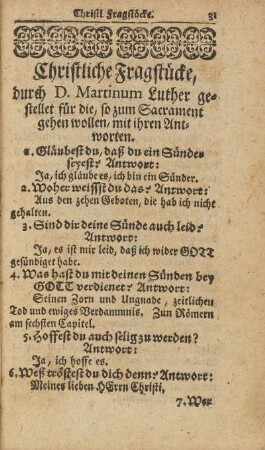 Christl. Fragstücke. 31
Christliche Fragstücke,
durch D. Martinum Luther ge-
stellet für die, so zum Sacrament
gehen wollen, mit ihren Ant-
worten.
1. Gläubest du, daß du ein Sünder
seyest? Antwort:
Ja, ich gläube es, ich bin ein Sünder.
2. Woher weissst du das? Antwort:
Aus den zehen Geboten, die hab ich nicht
gehalten.
3. Sind dir deine Sünde auch leid?
Antwort:
Ja, es ist mir leid, daß ich wider GOTT
gesündiget habe.
4. Was hast du mit deinen Sünden bey
GOTT verdienet? Antwort:
Seinen Zorn und Ungnade, zeitlichen
Tod und ewiges Verdammnis. Zun Römern
am sechsten Capitel.
5. Hoffest du auch selig zu werden?
Antwort:
Ja, ich hoffe es.
6. Weß tröstest du dich denn? Antwort:
Meines lieben HErrn Christi.
7. Wer